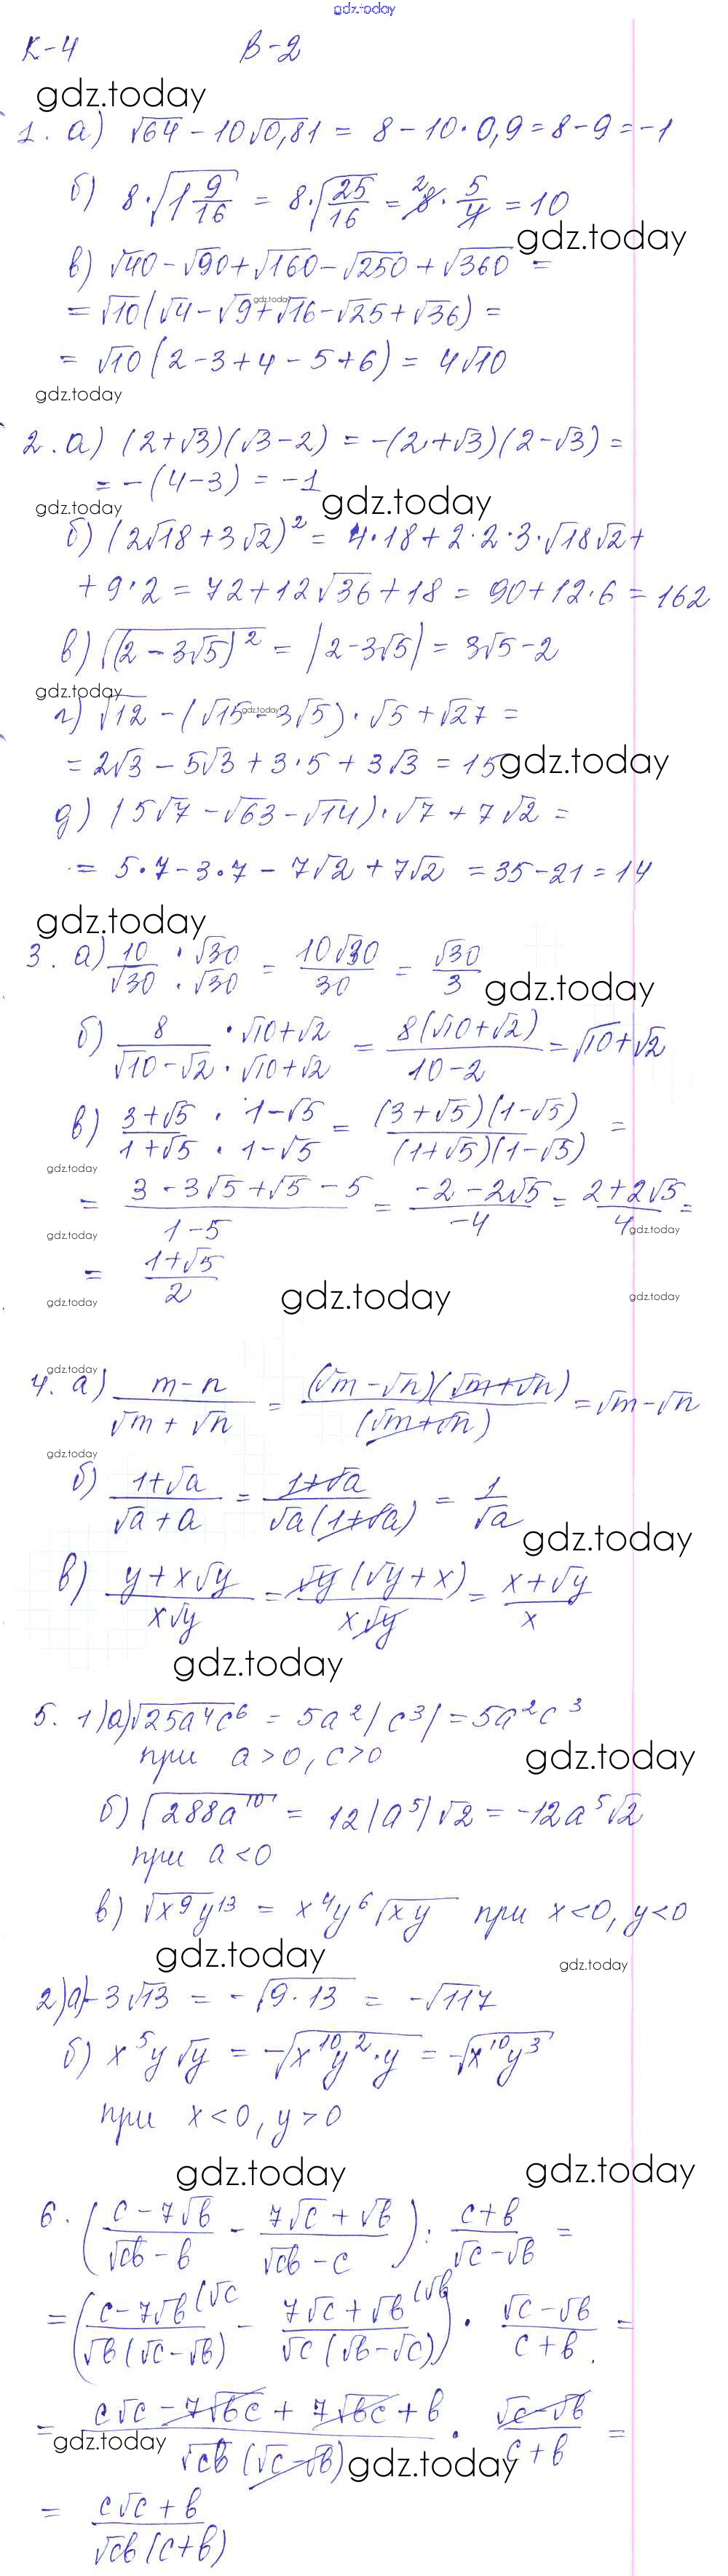 gdz.today
К-4 В-2
gdz.today
1. а) √64 - 10√0,81 = 8 - 10·0,9 = 8 - 9 = -1
б) 8·√(1 9/16) = 8·√(25/16) = 8·5/4 = 10
2
gdz.today
в) √40 - √90 + √160 - √250 + √360 =
= √10(√4 - √9 + √16 - √25 + √36) =
gdz.today
= √10(2 - 3 + 4 - 5 + 6) = 4√10
gdz.today
2. а) (2+√3)(√3-2) = -(2+√3)(2-√3) =
= -(4-3) = -1
gdz.today gdz.today
б) (2√18 + 3√2)² = 4·18 + 2·2·3·√18√2 +
+ 9·2 = 72 + 12√36 + 18 = 90 + 12·6 = 162
в) √(2-3√5)² = |2-3√5| = 3√5-2
gdz.today
г) √12 - (√15 - 3√5)·√5 + √27 =
gdz.today
= 2√3 - 5√3 + 3·5 + 3√3 = 15
gdz.today
д) (5√7 - √63 - √14)·√7 + 7√2 =
= 5·7 - 3·7 - 7√2 + 7√2 = 35 - 21 = 14
gdz.today
3. а) 10/√30 · √30/√30 = 10√30/30 = √30/3
gdz.today
б) 8/(√10-√2) · (√10+√2)/(√10+√2) = 8(√10+√2)/(10-2) = √10+√2
в) (3+√5)/(1+√5) · (1-√5)/(1-√5) = (3+√5)(1-√5)/((1+√5)(1-√5)) =
gdz.today
= (3-3√5+√5-5)/(1-5) = (-2-2√5)/(-4) = (2+2√5)/4 =
gdz.today gdz.today
= (1+√5)/2
gdz.today gdz.today gdz.today
gdz.today
4. а) (m-n)/(√m+√n) = (√m-√n)(√m+√n)/(√m+√n) = √m-√n
gdz.today
б) (1+√a)/(√a+a) = (1+√a)/(√a(1+√a)) = 1/√a
gdz.today
в) (y+x√y)/(x√y) = √y(√y+x)/(x√y) = (x+√y)/x
gdz.today
5. 1) а) √25a⁴c⁶ = 5a²|c³| = 5a²c³
при a>0, c>0
gdz.today
б) √288a¹⁰ = 12|a⁵|√2 = -12a⁵√2
при a<0
в) √x⁹y¹³ = x⁴y⁶√xy при x<0, y<0
gdz.today gdz.today
2) а) -3√13 = -√9·13 = -√117
б) x⁵y√y = -√x¹⁰y²·y = -√x¹⁰y³
при x<0, y>0
gdz.today gdz.today
6. ((c-7√b)/(√cb-b) - (7√c+√b)/(√cb-c)) : (c+b)/(√c-√b) =
= ((c-7√b(√c)/(√b(√c-√b)) - (7√c+√b(√b)/(√c(√b-√c))) · (√c-√b)/(c+b) =
= (c√c-7√bc+7√bc+b)/(√cb(√c-√b)) · (√c-√b)/(c+b) =
gdz.today gdz.today
= (c√c+b)/(√cb(c+b))